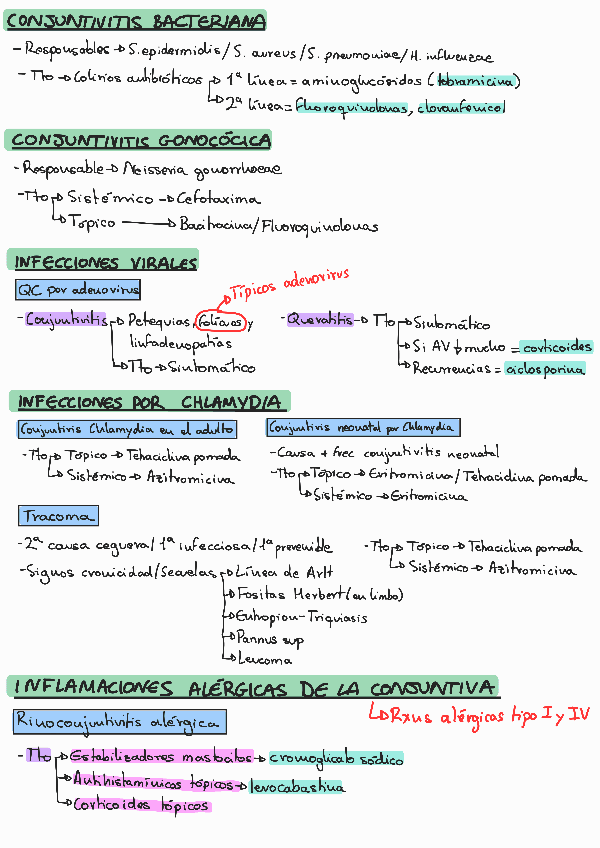 CONJUNTIVITIS BACTERIANA
- Responsables → S. epidermidis / S. aureus / S. pneumoniae / H. influenzae
- Tto → Colirios antibióticos → 1ª línea = aminoglucósidos (tobramicina)
→ 2ª línea = fluoroquinolonas, cloranfenicol
CONJUNTIVITIS GONOCÓCICA
- Responsable → Neisseria gonorrhoeae
- Tto → Sistémico → Cefotaxima
→ Tópico → Bacitracina / Fluoroquinolonas
INFECCIONES VIRALES
QC por adenovirus
→ Típicos adenovirus
- Conjuntivitis → Petequias, folículos y linfadenopatías
→ Tto → Sintomático
- Queratitis → Tto → Sintomático
→ Si AV ↓ mucho = corticoides
→ Recurrencias = ciclosporina
INFECCIONES POR CHLAMYDIA
Conjuntivitis Chlamydia en el adulto
- Tto → Tópico → Tetraciclina pomada
→ Sistémico → Azitromicina
Conjuntivitis neonatal por Chlamydia
- Causa + frec conjuntivitis neonatal
- Tto → Tópico → Eritromicina / Tetraciclina pomada
→ Sistémico → Eritromicina
Tracoma
- 2ª causa ceguera / 1ª infecciosa / 1ª prevenible
- Signos cronicidad / Secuelas → Línea de Arlt
→ Fositas Herbert (en limbo)
→ Entropion - Triquiasis
→ Pannus sup
→ Leucoma
- Tto → Tópico → Tetraciclina pomada
→ Sistémico → Azitromicina
INFLAMACIONES ALÉRGICAS DE LA CONJUNTIVA
→ Rxns alérgicas tipo I y IV
Rinoconjuntivitis alérgica
- Tto → Estabilizadores mastocitos → cromoglicato sódico
→ Antihistamínicos tópicos → levocabastina
→ Corticoides tópicos